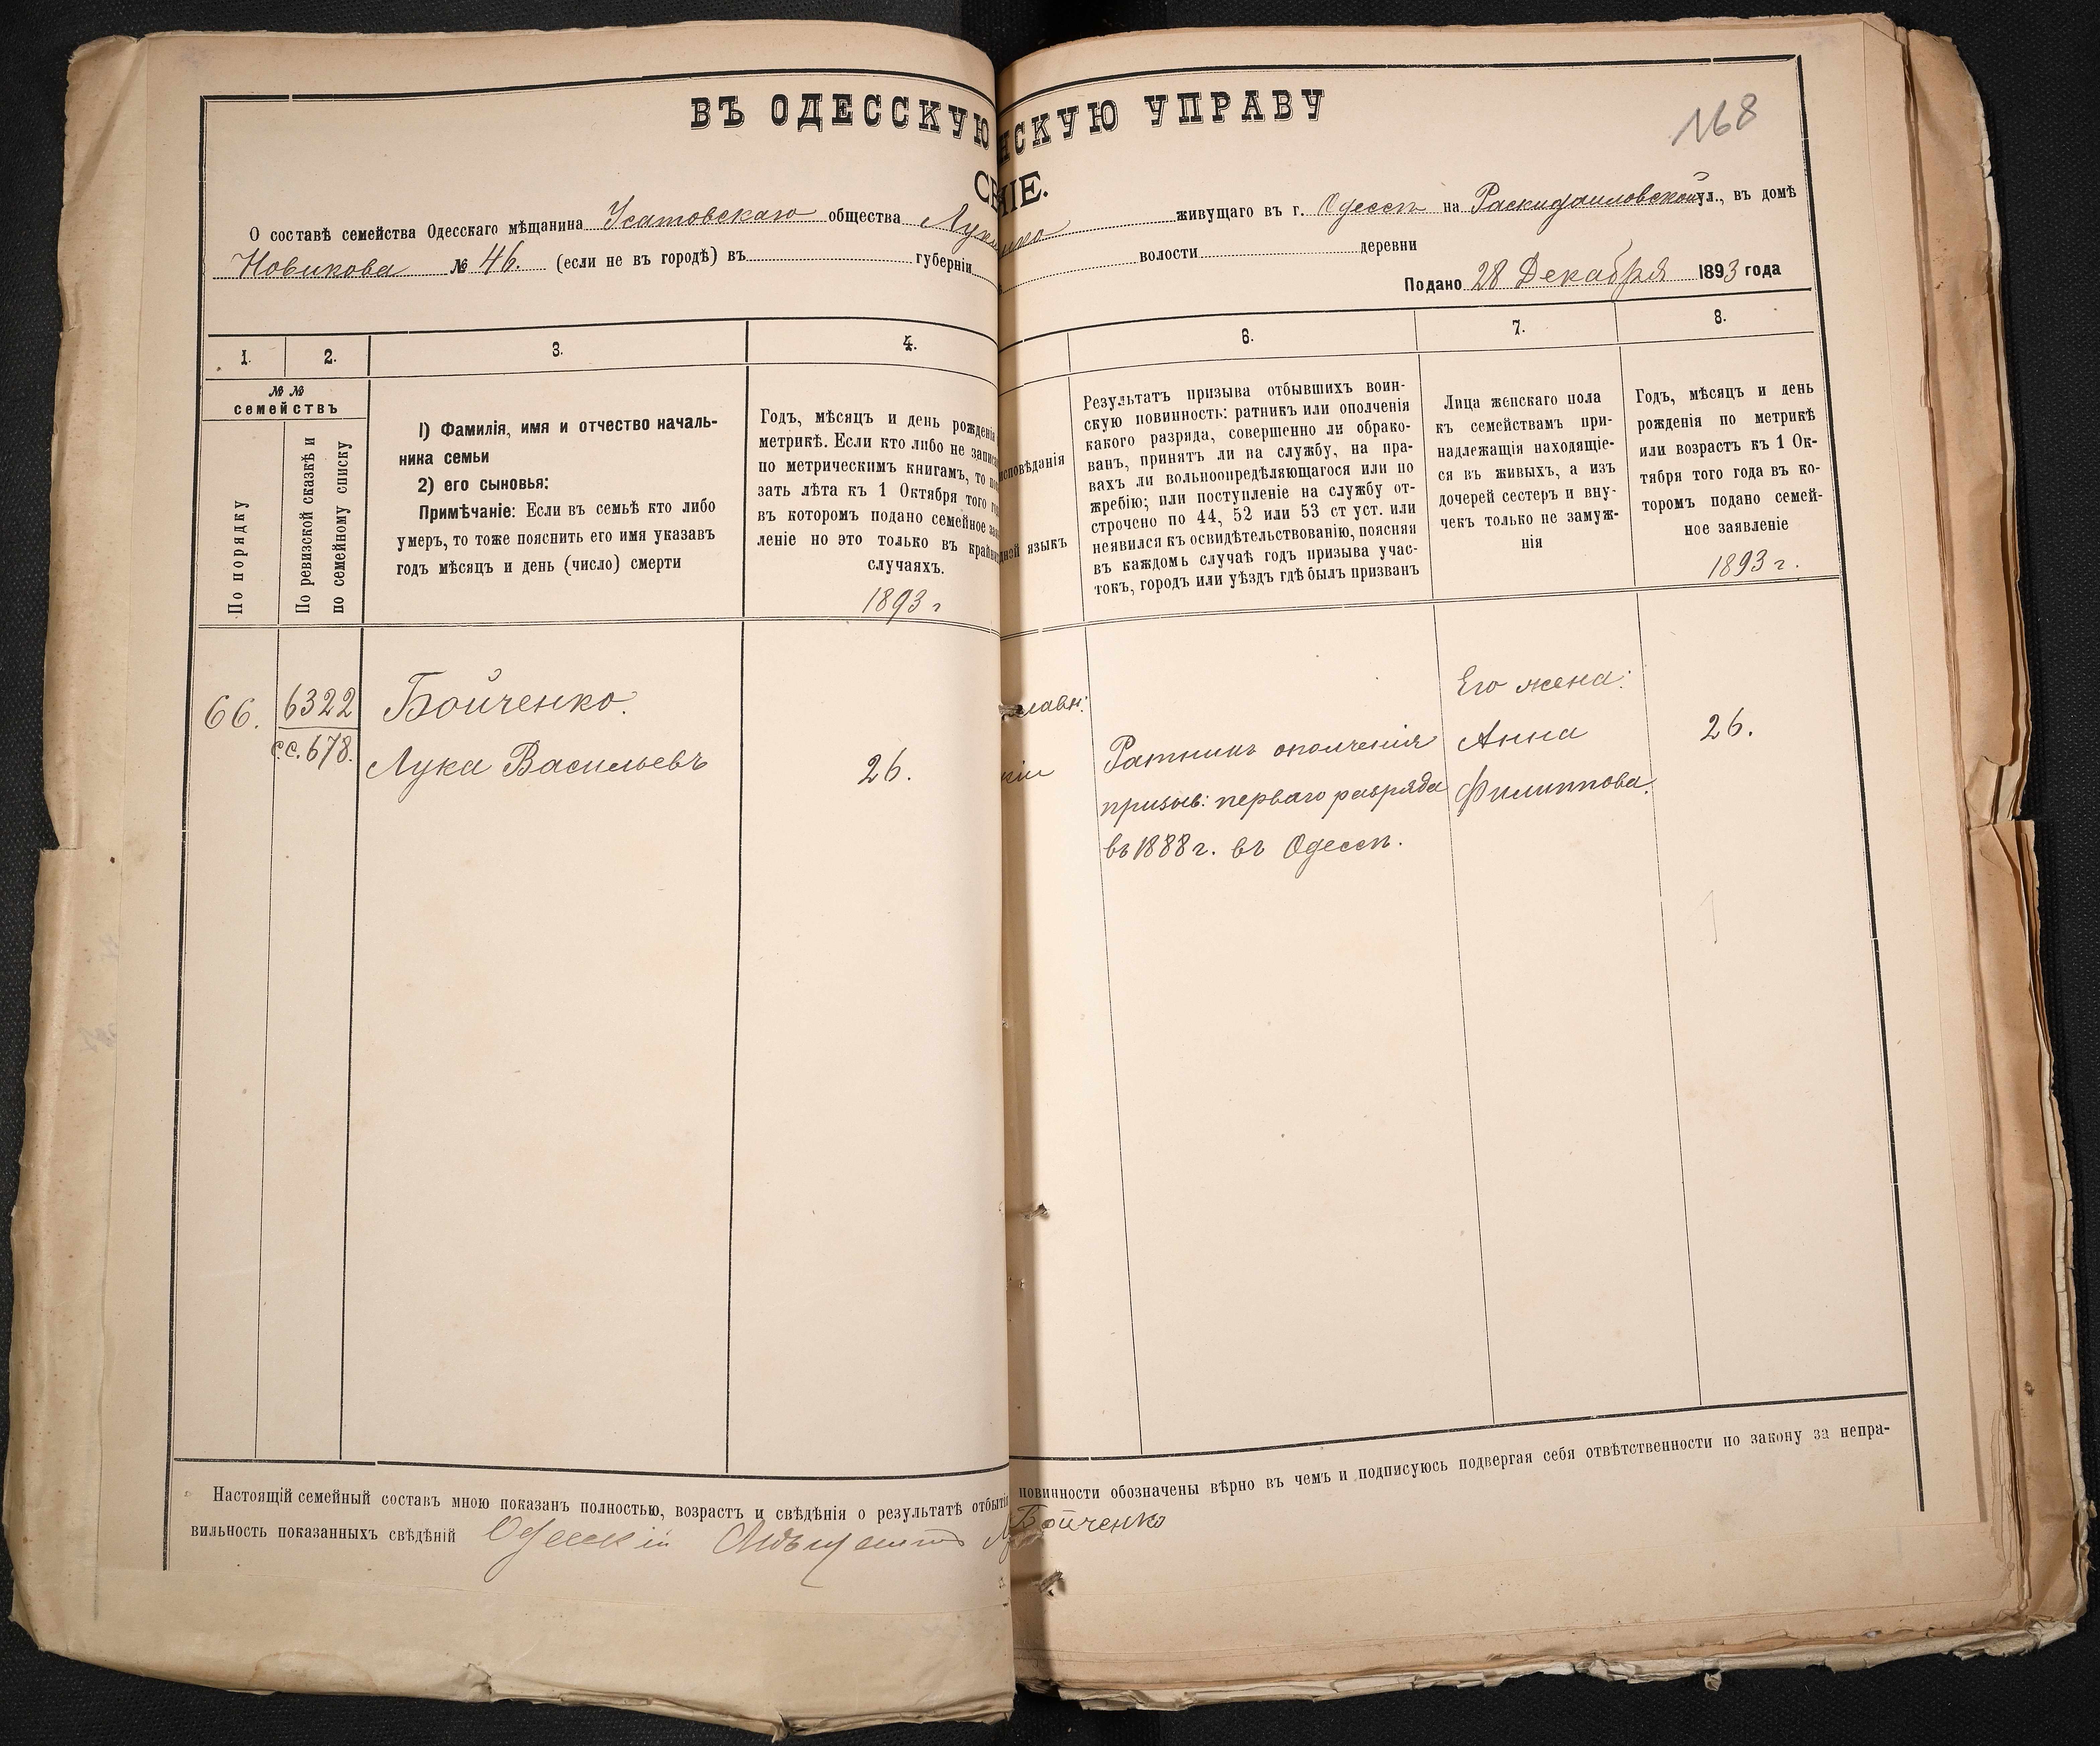 168
ВЪ ОДЕССКУЮ НСКУЮ УПРАВУ
СЕ НІЕ.
О составѣ семейства Одесскаго мѣщанина Усатовскаго общества Лук нко живущаго въ г. Одессѣ на Раскидаиловской ул., въ домѣ
Новикова № 46. (если не въ городѣ) въ губерніи волости деревни
Подано 28 Декабря 1893 года
1. 2. 3. 4. 6. 7. 8.
№ №
семействъ
По порядку
По ревизской сказкѣ и
по семейному списку
1) Фамилія, имя и отчество началь-
ника семьи
2) его сыновья:
Примѣчаніе: Если въ семьѣ кто либо
умеръ, то тоже пояснить его имя указавъ
годъ мѣсяцъ и день (число) смерти
Годъ, мѣсяцъ и день рожденія
метрикѣ. Если кто либо не записа
по метрическимъ книгамъ, то пок
зать лѣта къ 1 Октября того го
въ которомъ подано семейное зая
леніе но это только въ крайни
случаяхъ.
1893 г
исповѣданія
ной языкъ
Результатъ призыва отбывшихъ воин-
скую повинность: ратникъ или ополченія
какого разряда, совершенно ли обрако-
ванъ, принятъ ли на службу, на пра-
вахъ ли вольноопредѣляющагося или по
жребію; или поступленіе на службу от-
строчено по 44, 52 или 53 ст уст. или
неявился къ освидѣтельствованію, поясняя
въ каждомъ случаѣ годъ призыва учас-
токъ, городъ или уѣздъ гдѣ былъ призванъ
Лица женскаго пола
къ семействамъ при-
надлежащія находящіе-
ся въ живыхъ, а изъ
дочерей сестеръ и вну-
чекъ только не замуж-
нія
Годъ, мѣсяцъ и день
рожденія по метрикѣ
или возрастъ къ 1 Ок-
тября того года въ ко-
торомъ подано семей-
ное заявленіе
1893 г.
66.
6322
с.с. 678.
Бойченко.
Лука Васильевъ
26.
славн:
кій
Ратникъ ополченія
призыв: перваго разряда
въ 1888 г. въ Одессѣ.
Его жена:
Анна
Филиппова.
26.
Настоящій семейный составъ мною показанъ полностью, возрастъ и свѣдѣнія о результатѣ отбытія повинности обозначены вѣрно въ чемъ и подписуюсь подвергая себя отвѣтственности по закону за непра-
вильность показанныхъ свѣдѣній Одесскій Бойченко